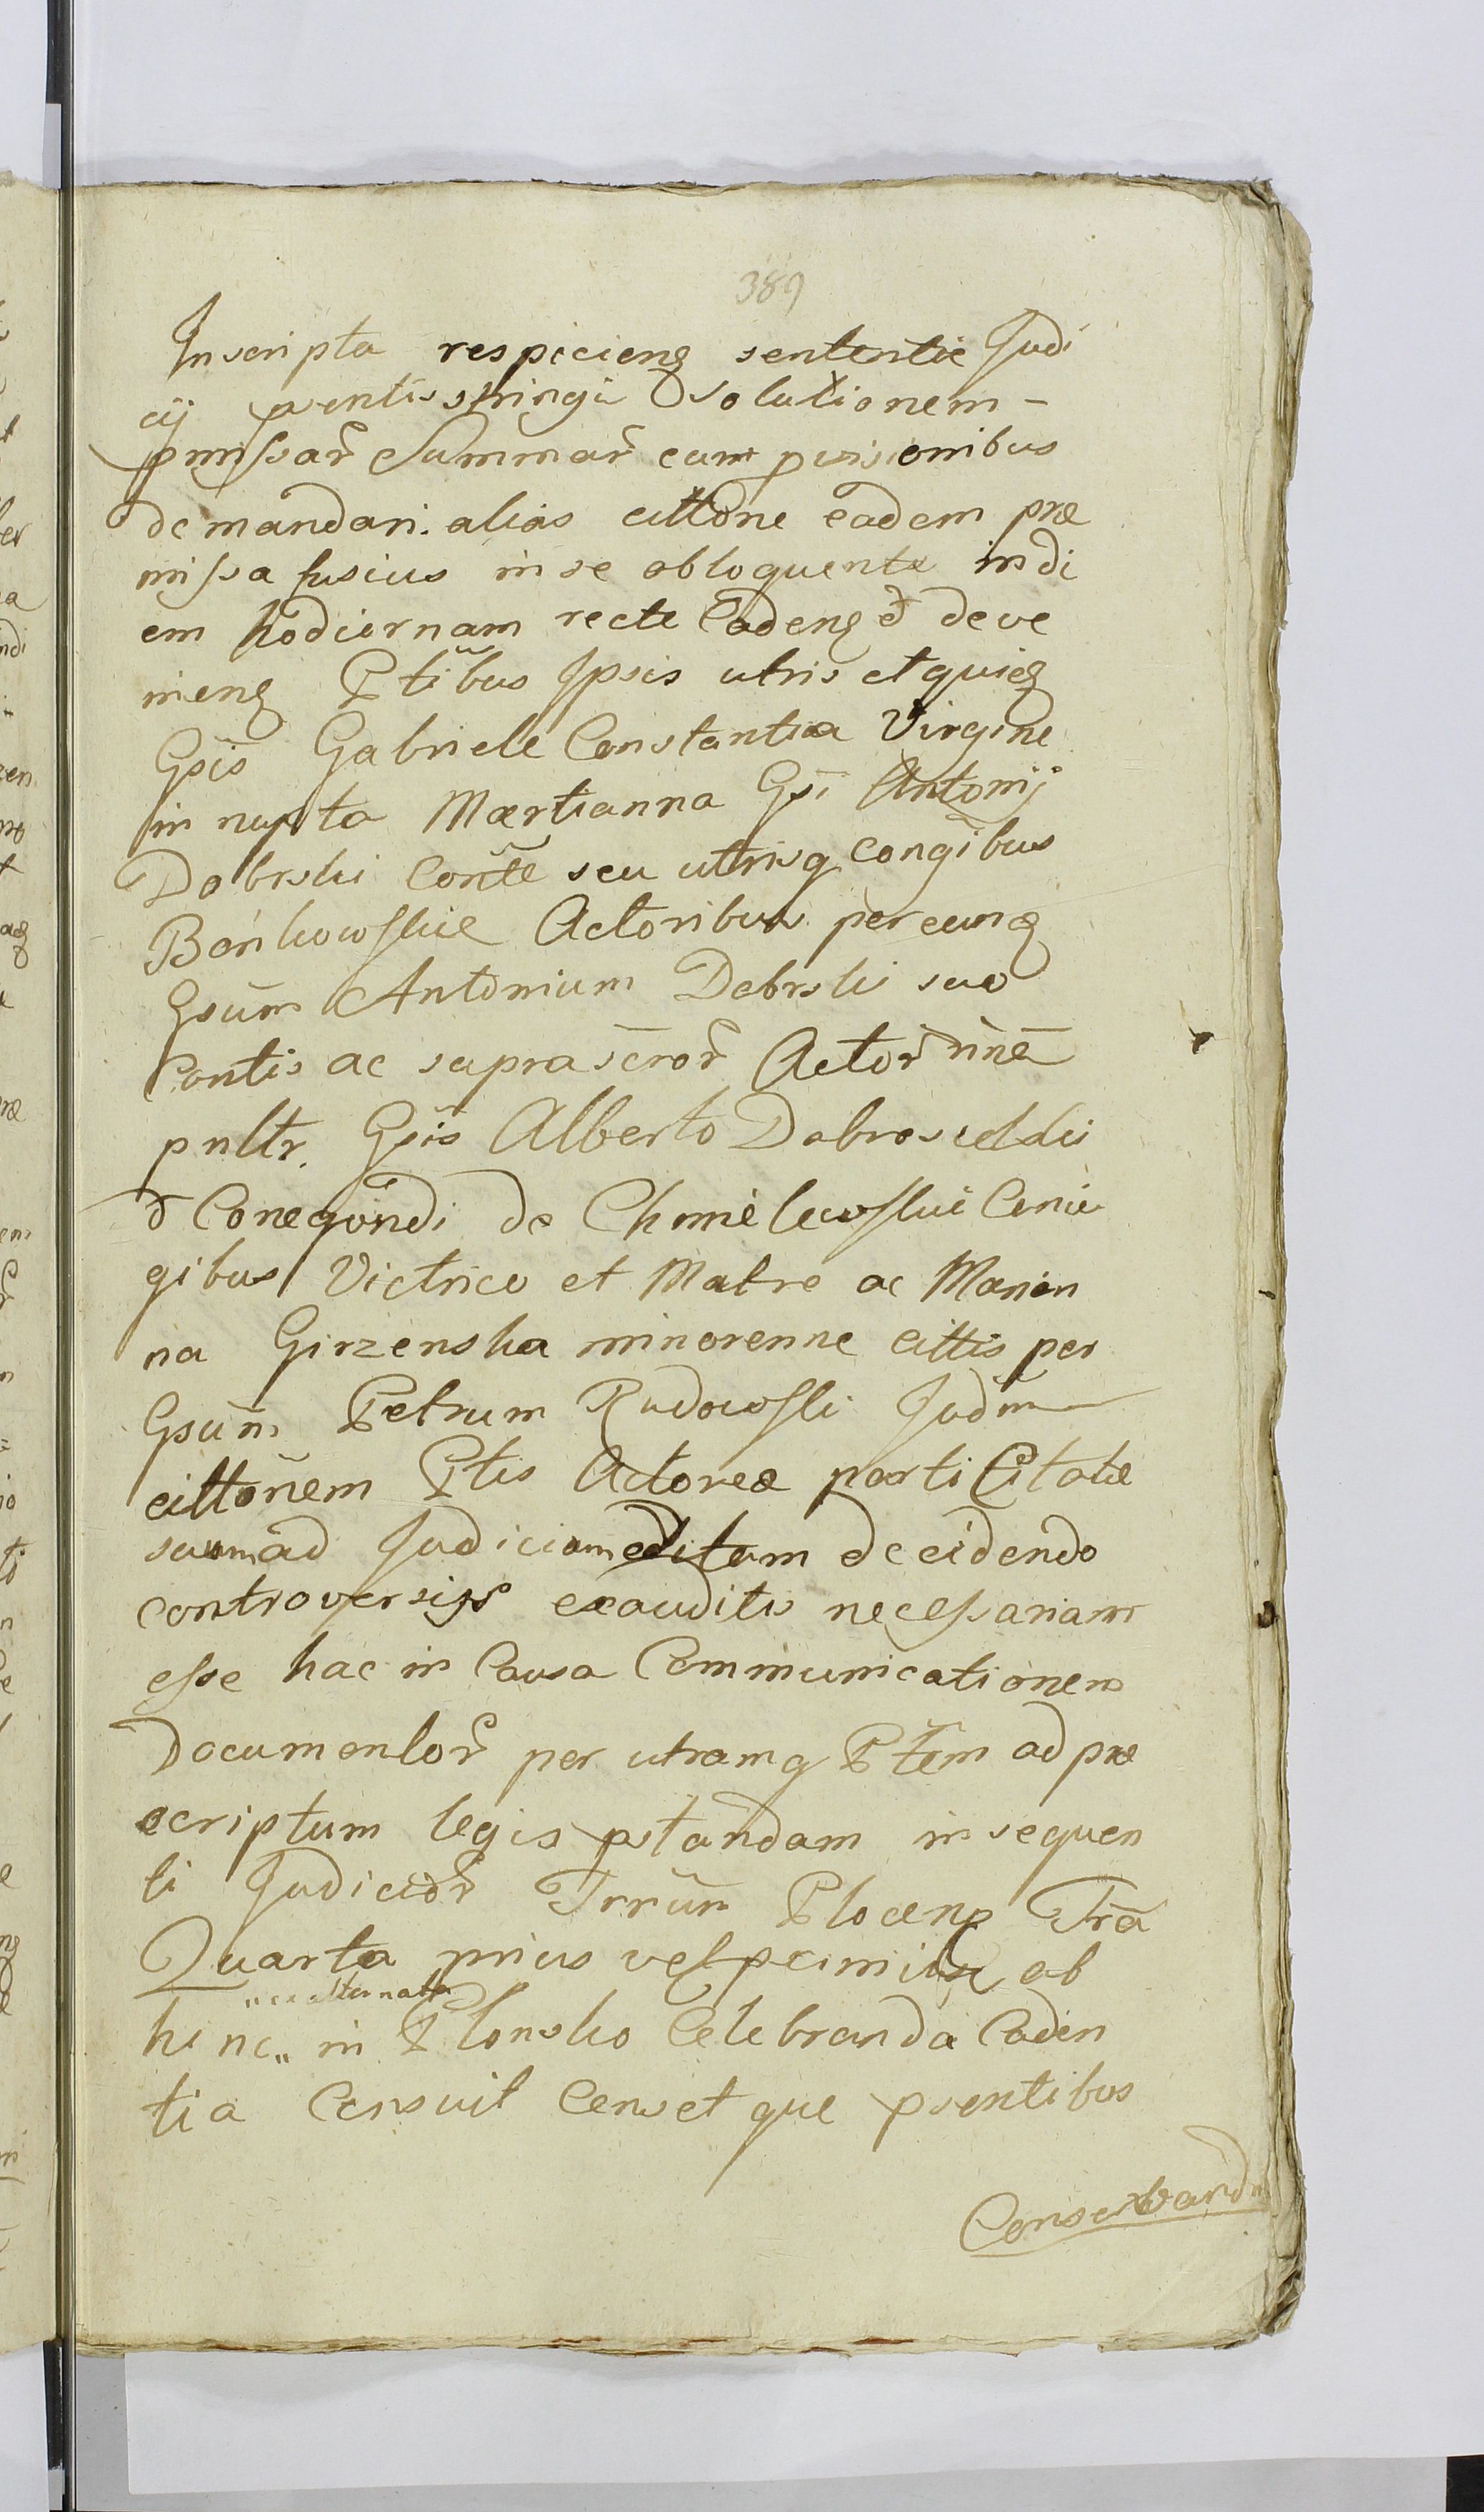 389
Inscripta respicieng sententie Judi
cij pentis stringi Solutionem -
pmissar Summar cum pvisionibus
demandari. alias cittone eadem præ
missa fusius in se obloquente in di
em hodiernam recte Cadeng & deve
nieng Ptibus Ipsis utris et quieg
Gsis Gabriele Constantia Virgine
in nupta Martianna Gsi Antonij
Dobrski Conte seu utrisq congibus
Bońkowskie Actoribus per eung
Gsum Antonium Dobrski suo
Contis ac suprascror Actor nne
pnltr. Gsis Alberto Dobrosieldki
& Conegondi de Chmielewskie Coniu
gibus Victrico et Matre ac Marian
na Girzenska minorenne cittis per
Gsum Petrum Rudowski Judm
cittonem Ptis Actoreæ parti Citatæ
suum ad Judicium editam decidendo
controversijs exauditis necessariam
esse hac in Causa Communicationem
Documentor per utramq Ptem ad præ
scriptum legis pstandam in sequen
ti Judicior Trrium Plocens Tra
Quarta prius vel proximius ab
"ex alternatta
hinc " in Plonsko Celebranda Caden
tia Censuit Censet que psentibus
Conservandm